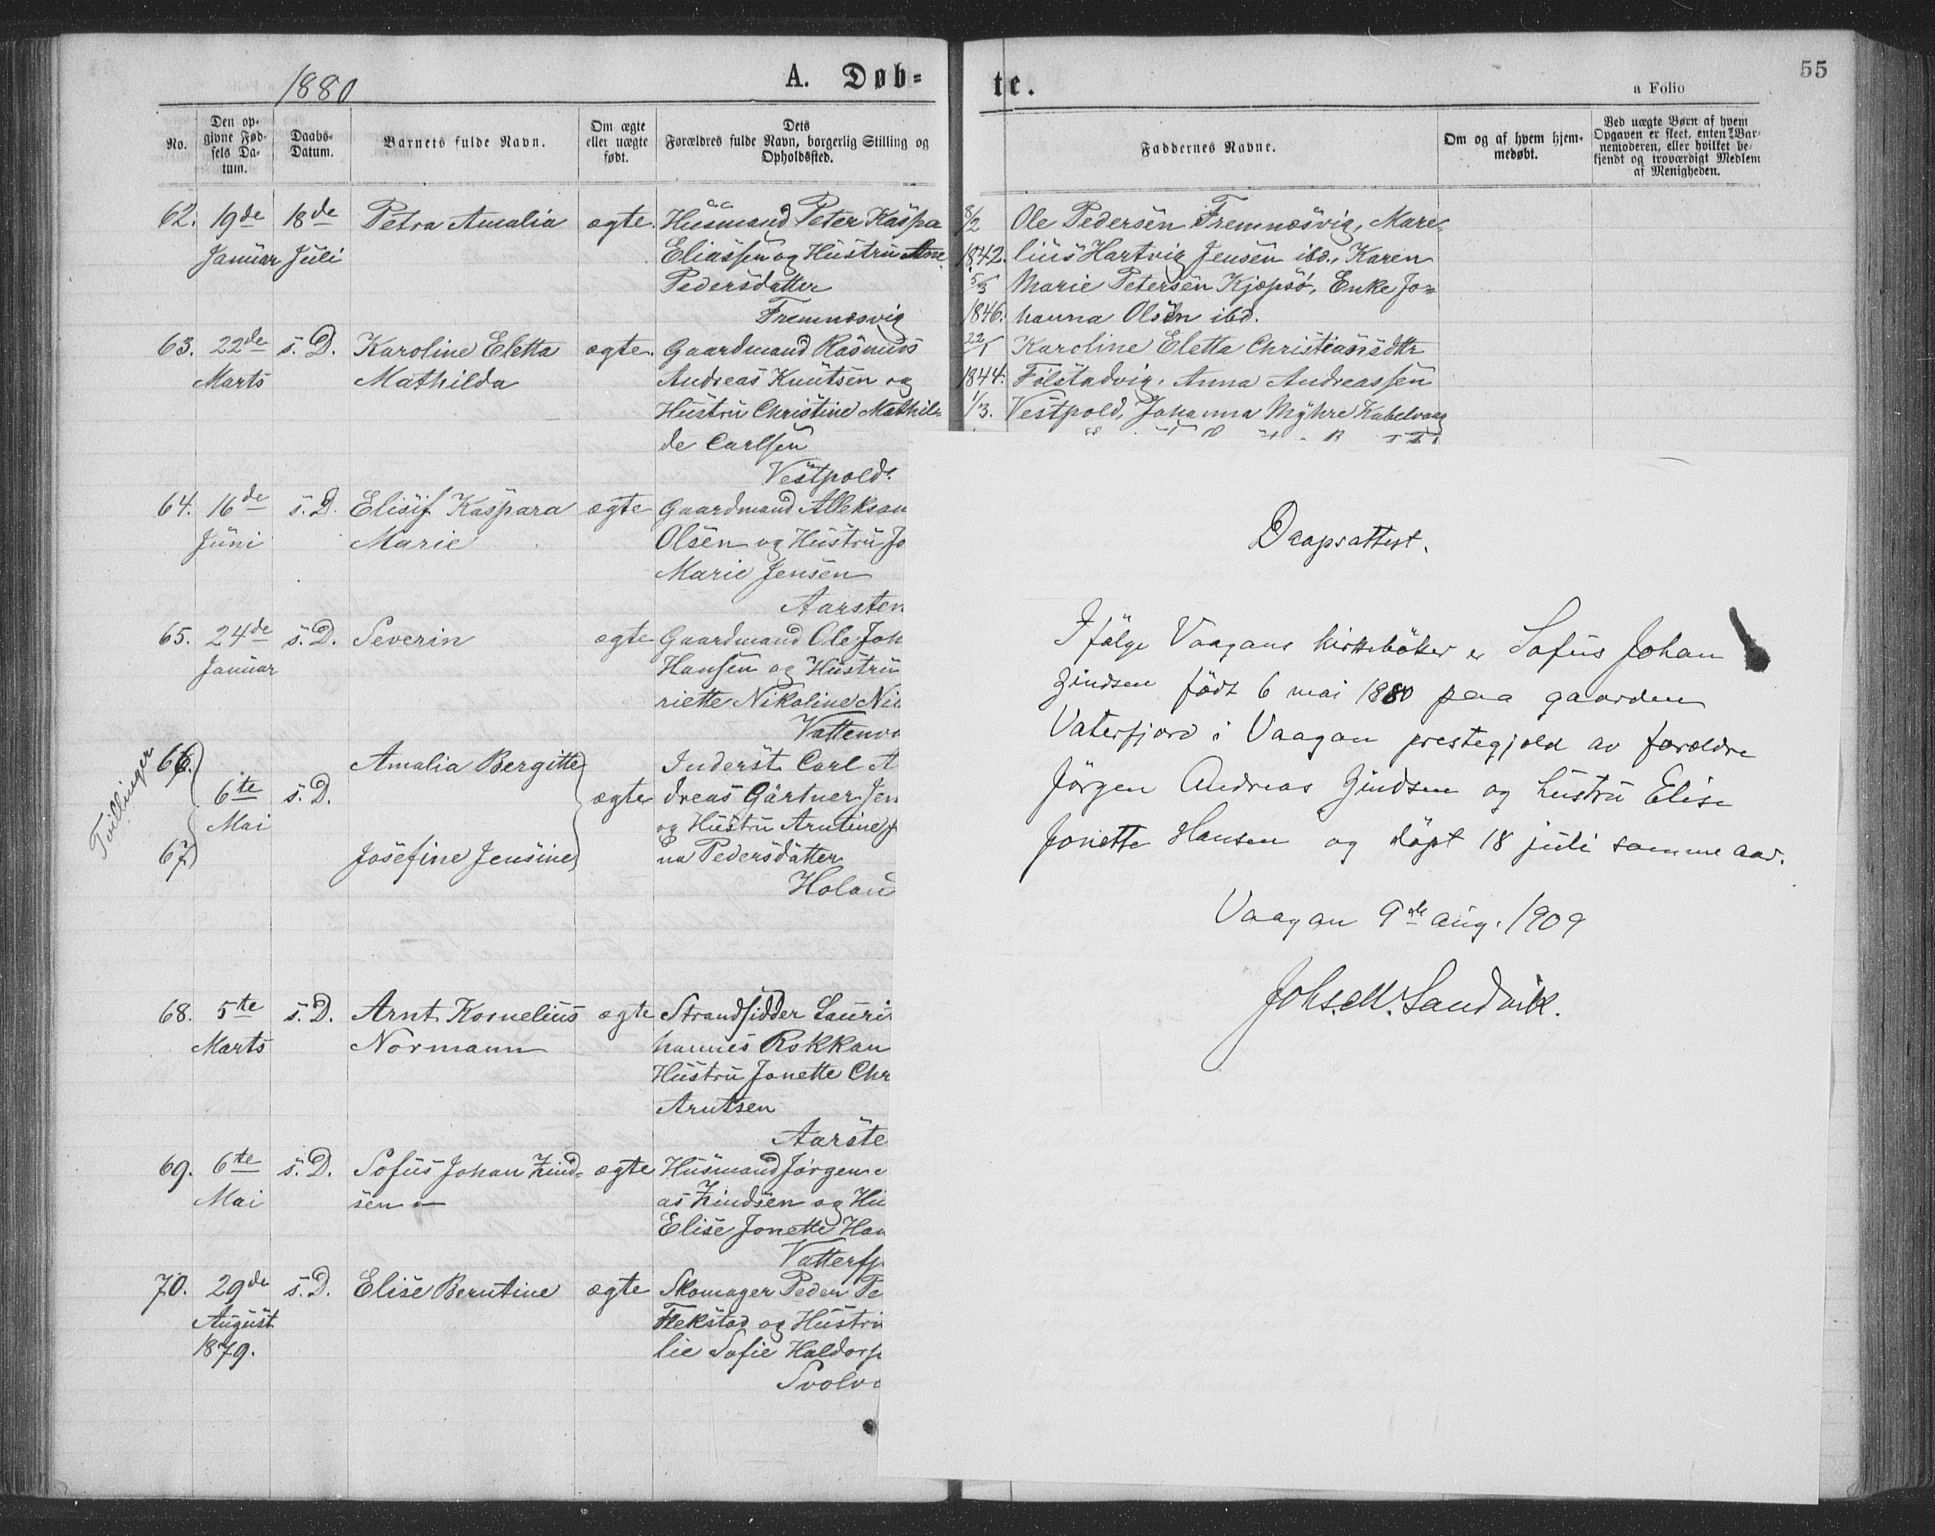 1880
A. Døb=
te.
55
a Folio
No.
Den op-
givne Fød-
sels Da-
tum.
Daabs-
Datum.
Barnets fulde Navn.
Om ægte
eller uægte
født.
Dets
Forældres fulde Navn, borgerlig Stilling og
Opholdssted.
Faddernes Navne.
Om og af hvem hjem-
medøbt.
Ved uægte Børn af hvem
Opgaven er skeet, enten Bar-
nemoderen, eller hvilket be-
kjendt og troværdigt Medlem
af Menigheden.
62. 19de Januar 18de Juli Petra Amalia ægte. Husmand Peter Kaspa
Eliassen og Hustru Ane
Pedersdatter
Fremnæsvig
8/2 Ole Pedersen Fremnæsvig, Mare-
1842. lius Hartvig Jensen ibd., Karen
5/3 Marie Petersen Kjæpsø, Enke Jo=
1846. hanna Olsen ibd.
63. 22de Marts s. D. Karoline Eletta
Mathilda
ægte. Gaardmand Rasmus
Andreas Knutsen og
Hustru Christine Mathil-
de Carlsen
Vestpold.
22/1 Karoline Eletta Christiansdttr
1844. Følstadvig, Anna Andreassen
1/3. Vestpold, Johanna Myhre Kabelvaag
64. 16de Juni s. D. Elisif Kaspara
Marie
ægte Gaardmand Alleksan
Olsen og Hustru Jo
Marie Jensen
Aarsten
65. 24de Januar s. D. Severin ægte Gaardmand Ole Joh
Hansen og Hustru
riette Nikoline Ni
Vattenv
Tvillinger
66. Amalia Bergitte
6te Mai s. D.
67. Josefine Jensine
ægte
Inderst Carl A
dreas Gärtner Jen
og Hustru Arntine
na Pedersdatter
Holan
68. 5te Marts s. D. Arnt Kornelius
Normann
ægte Strandsidder Lauri
hannes Rokkan
Hustru Jonette Chr
Arntsen
Aarste
69. 6te Mai s. D. Sofus Johan Zind-
sen
ægte Husmand Jørgen
as Zindsen og Hu
Elise Jonette Han
Vatterfj
70. 29de August 1879. s. D. Elise Berntine ægte Skomager Peder Pe
Flekstad og Hustru
lie Sofie Haldors
Svolv
Daapsattest.
Ifølge Vaagans kirkebøker er Sofus Johan
Zindsen født 6 mai 1880 paa gaarden
Vaterfjord i Vaagan prestegjeld av forældre
Jörgen Andreas Zindsen og hustru Elise
Jonette Hansen og døpt 18 juli samme aar.
Vaagan 9de aug. 1909
Johs. M. Sandvik.